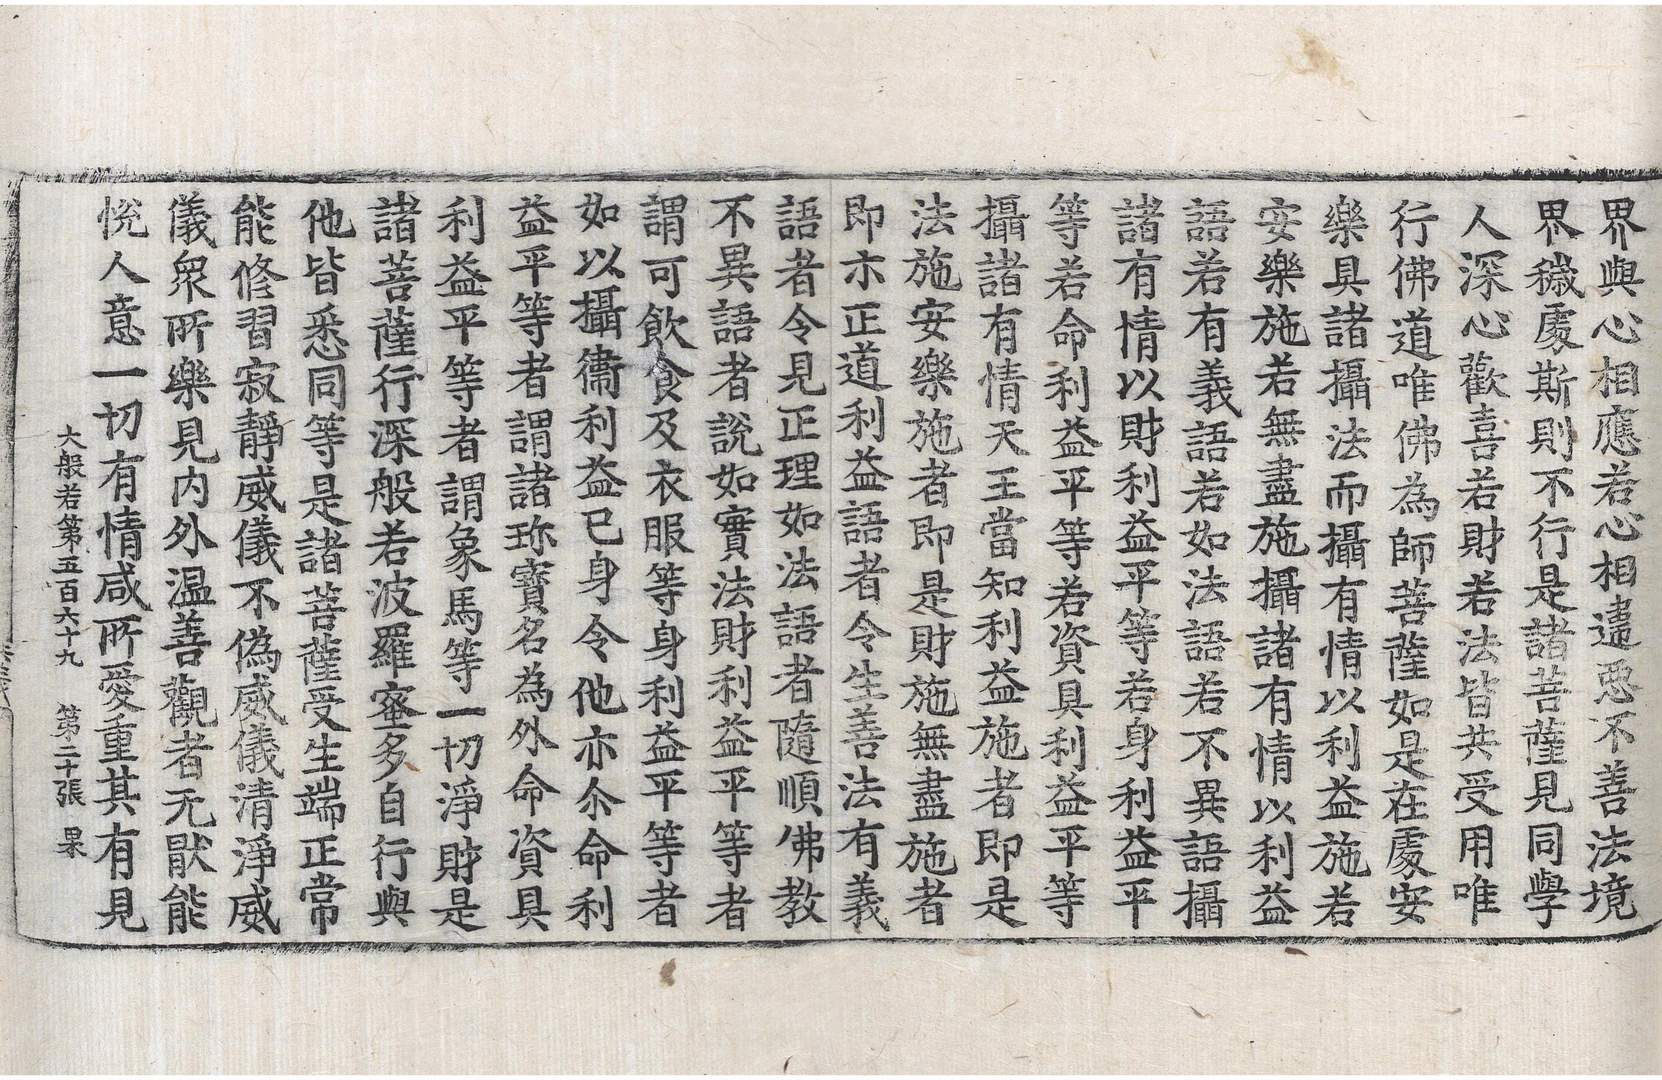 界與心相應若心相違惡不善法境
界穢處斯則不行是諸菩薩見同學
人深心歡喜若財若法皆共受用唯
行佛道唯佛為師菩薩如是在處安
樂具諸攝法而攝有情以利益施若
安樂施若無盡施攝諸有情以利益
語若有義語若如法語若不異語攝
諸有情以財利益平等若身利益平
等若命利益平等若資具利益平等
攝諸有情天王當知利益施者即是
法施安樂施者即是財施無盡施者
即示正道利益語者令生善法有義
語者令見正理如法語者隨順佛教
不異語者說如實法財利益平等者
謂可飲食及衣服等身利益平等者
如以攝衛利益已身令他亦尒命利
益平等者謂諸珎寶名為外命資具
利益平等者謂象馬等一切淨財是
諸菩薩行深般若波羅蜜多自行與
他皆悉同等是諸菩薩受生端正常
能修習寂靜威儀不偽威儀清淨威
儀衆所樂見内外温善觀者无猒能
悅人意一切有情咸所愛重其有見
大般若第五百六十九 第二十張 果